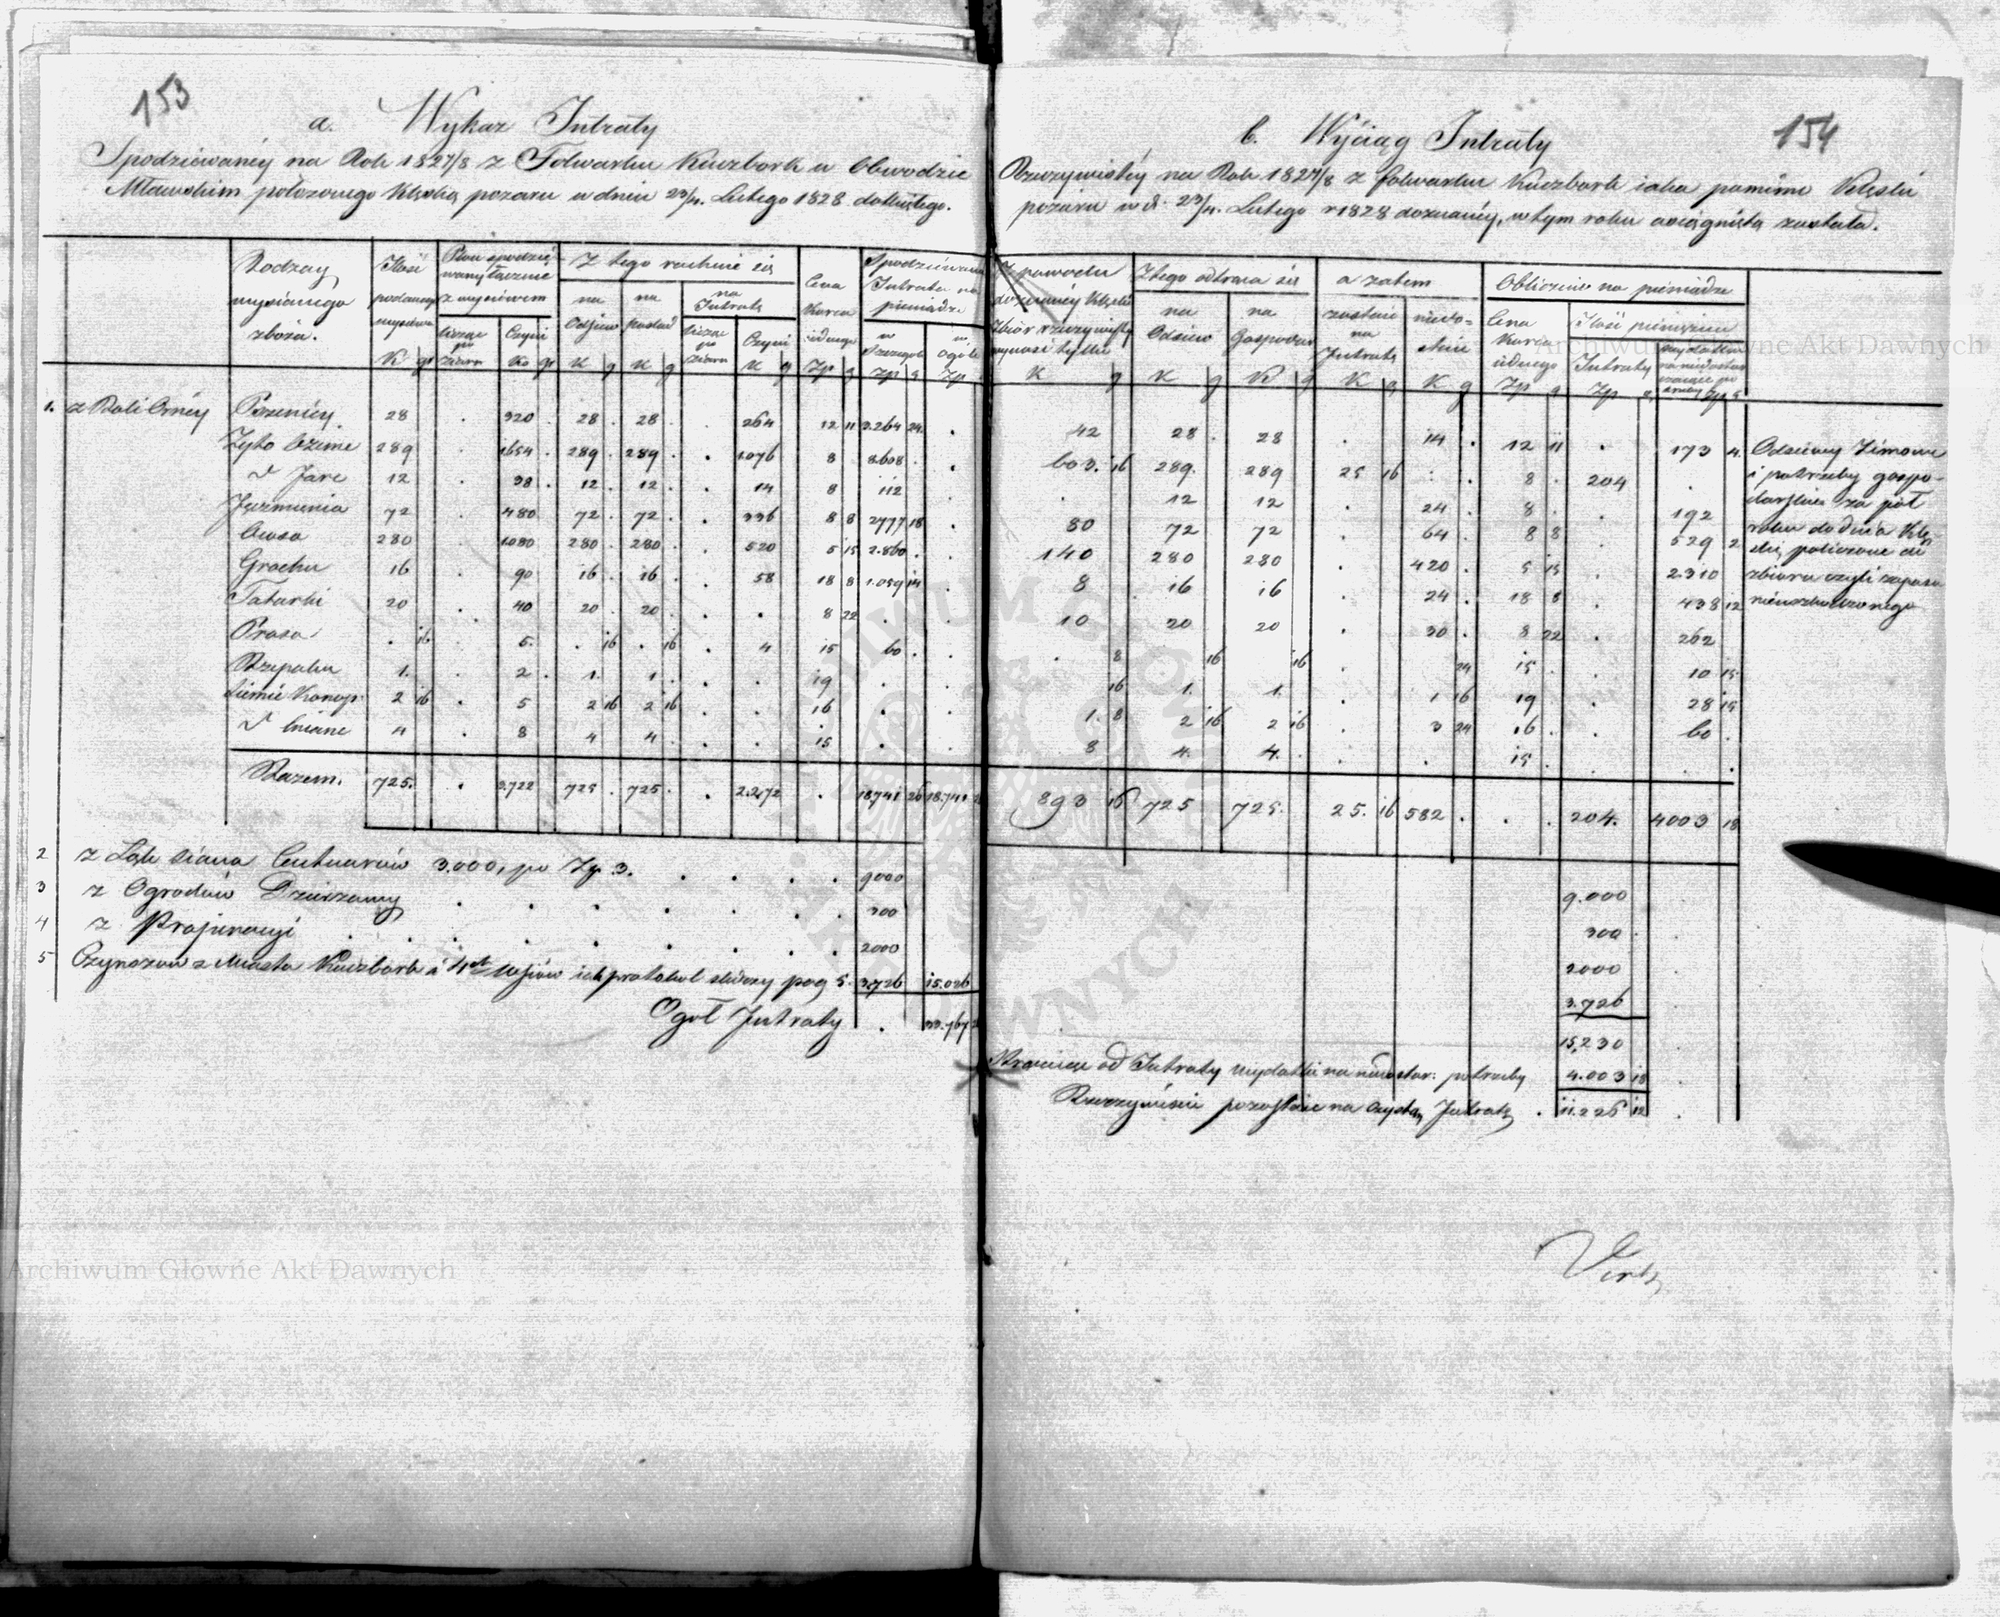 153
a. Wykaz Intraty
Spodziewanéy na Rok 1827/8 z Folwarku Kuczbork w Obwodzie
Mławskim położonego klęską pożaru w dniu 23/4. Lutego 1828 dotkniętego.
Rodzay wysianego zboża.
Ilość podaney wysiewu K gr
Plon spodziewany łącznie z wysiewem
licząc po ziarn
Czyni Ko gr
Z tego rachuie się
na Odsiew K g
na K g
na Intratę
licząc po ziarn
Czyni K g
Cena Korca iednego Zp g
Spodziewana Intrata na pieniądze
w Szczególe Zp g
w Ogóle Zp
1. z Roli Ornéy Pszenicy 28 . 320 . 28 . 28 . 264 12 11 3.264 24. .
Żyto Ozime 289 . 1654 . 289 . 289 . . 1076 8 8608 . .
d Jare 12 . 38 . 12 . 12 . . 14 8 112
Jęczmienia 72 . 480 72 . 72 . . 336 8 8 2777 18 .
Owsa 280 . 1080 280 . 280 . . 520 5 15 2.860 . .
Grochu 16 . 90 16 . 16 . . 58 18 8 1.059 14 .
Tatarki 20 . 40 20 . 20 . . . 8 22 . .
Prosa . 16 . 5. . 16 . 16 . 4 15 60 . .
Rzepaku 1. . 2 . 1. 1 . . . 19 . .
Siemie Konop: 2 16 . 5 2 16 2 16 . . 16 . .
d lniane 4 . 8 4 4 . . . 15 . .
Razem. 725. . 3722 725 . 725 . . 2.272 . 18741 26 18.741
2 z Łąk Siana Centnarów 3.000, po Zp 3. . . . . 9000
3 z Ogrodów Dzierzawy . . . . . . 300
4 z Propinacyi . . . . . . 2000
5 Czynszow z Miasta Kuczbork i wsiów iak protokul pag 5. 3.726 15.026
Ogół Intraty . 33.767
154
b. Wyciąg Intraty
Rzeczywistéy na Rok 1827/8 z folwarku Kuczbork iaka pomimo Klęski
pożaru w d. 23/4. Lutego r 1828 doznanéy, w tym roku osiągniętą została.
Z powodu doznanéy Klęski Zbiór rzeczywisty wynosi tylko K g
Z tego odtrąca się
na Odsiew K g
na Gospodar K g
a zatem
zostaie na Intratę K g
niedostaie K g
Obliczenie na pieniądze
Cena Korca iednego Zp g
Ilość pieniężna
Intraty Zp g
wydatku na niedostarczaiące potrzeby Zp g
42 28 . 28 . 14 . 12 11 . 173 4.
603. 16 289. 289 25 16 . . 8 . 204 .
. 12 12 24 . 8 . . 192
80 72 72 . 64 . 8 8 . 529 2
140 280 280 . 420 . 5 15 . 2310
8 . 16 16 . 24 . 18 8 . 438 12
10 20 20 . 30 . 8 22 . 262
. 8 16 16 . 24 15 . . 10 15
16 1. 1. . 1 16 19 28 15
1. 8 2 16 2 16 . 3 24 16 . . 60 .
8 4. 4. . . . 15 . . . .
893 16 725 725. 25. 16 582 . . . 204. 4003 18
Odsiewy Zimowe
i potrzeby gospo-
darskie za pół
roku do dnia Klę-
ski, policzone do
zbioru czyli zapasu
nieuszkodzonego
9.000
300 .
2000
3.726
15,230
od Intraty wydatki na niedostar: potrzeby 4.003 18
Rzeczywiście pozostaie na czystą Intratę . 11.226 12
Archiwum Główne Akt Dawnych
Archiwum Główne Akt Dawnych